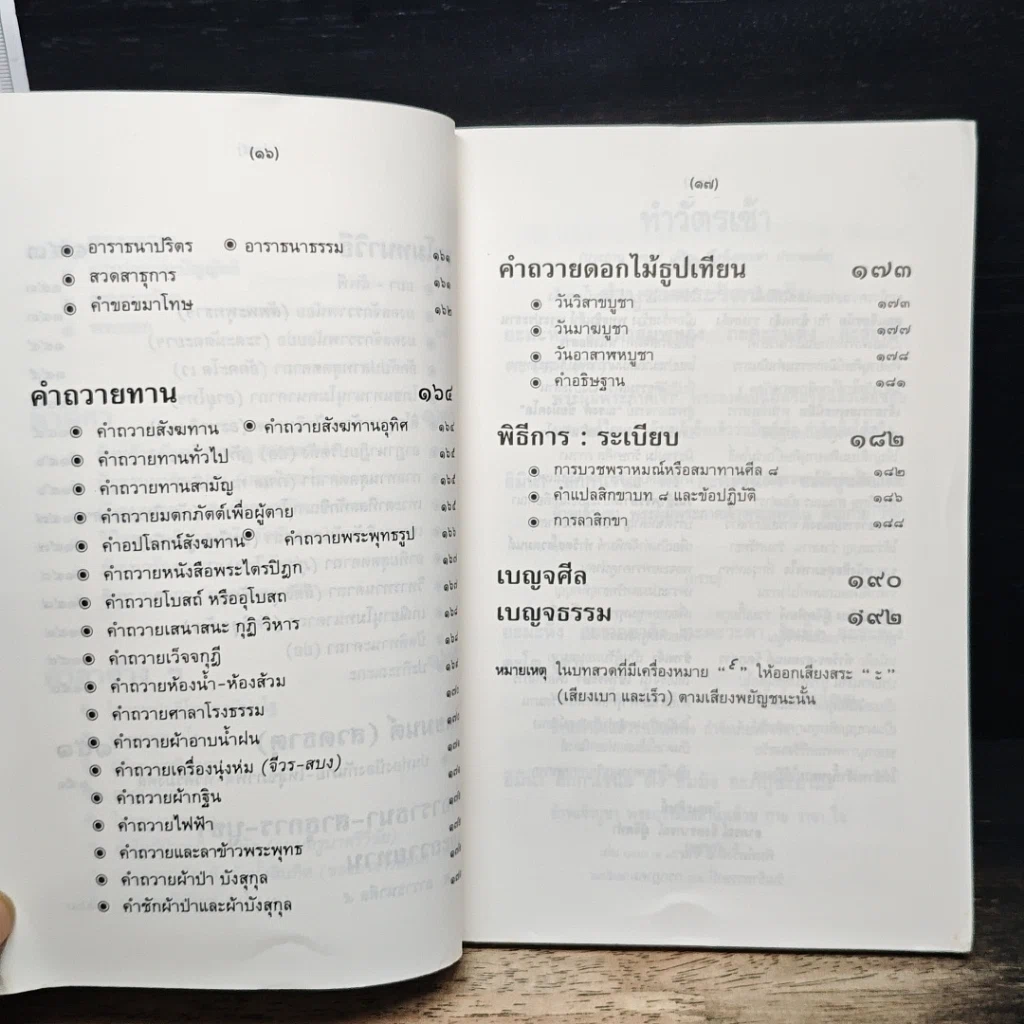 (๑๖)
◉ อาราธนาปริตร ◉ อาราธนาธรรม ๑๖๑
◉ สวดสาธุการ ๑๖๑
◉ คำขอขมาโทษ ๑๖๒
คำถวายทาน ๑๖๔
◉ คำถวายสังฆทาน ◉ คำถวายสังฆทานอุทิศ ๑๖๔
◉ คำถวายทานทั่วไป ๑๖๕
◉ คำถวายทานสามัญ ๑๖๕
◉ คำถวายมตกภัตต์เพื่อผู้ตาย ๑๖๕
◉ คำอปโลกน์สังฆทาน ◉ คำถวายพระพุทธรูป ๑๖๖
◉ คำถวายหนังสือพระไตรปิฎก
◉ คำถวายโบสถ์ หรืออุโบสถ
◉ คำถวายเสนาสนะ กุฏิ วิหาร
◉ คำถวายเว็จจกุฎี
◉ คำถวายห้องน้ำ-ห้องส้วม
◉ คำถวายศาลาโรงธรรม
◉ คำถวายผ้าอาบน้ำฝน
◉ คำถวายเครื่องนุ่งห่ม (จีวร-สบง)
◉ คำถวายผ้ากฐิน
◉ คำถวายไฟฟ้า
◉ คำถวายและลาข้าวพระพุทธ
◉ คำถวายผ้าป่า บังสุกุล
◉ คำชักผ้าป่าและผ้าบังสุกุล
(๑๗)
คำถวายดอกไม้ธูปเทียน ๑๗๓
◉ วันวิสาขบูชา ๑๗๓
◉ วันมาฆบูชา ๑๗๗
◉ วันอาสาฬหบูชา ๑๗๘
◉ คำอธิษฐาน ๑๘๑
พิธีการ : ระเบียบ ๑๘๒
◉ การบวชพราหมณ์หรือสมาทานศีล ๘ ๑๘๒
◉ คำแปลสิกขาบท ๘ และข้อปฏิบัติ ๑๘๖
◉ การลาสิกขา ๑๘๘
เบญจศีล ๑๙๐
เบญจธรรม ๑๙๒
หมายเหตุ ในบทสวดที่มีเครื่องหมาย “ ๎ ” ให้ออกเสียงสระ “ ะ ”
(เสียงเบา และเร็ว) ตามเสียงพยัญชนะนั้น